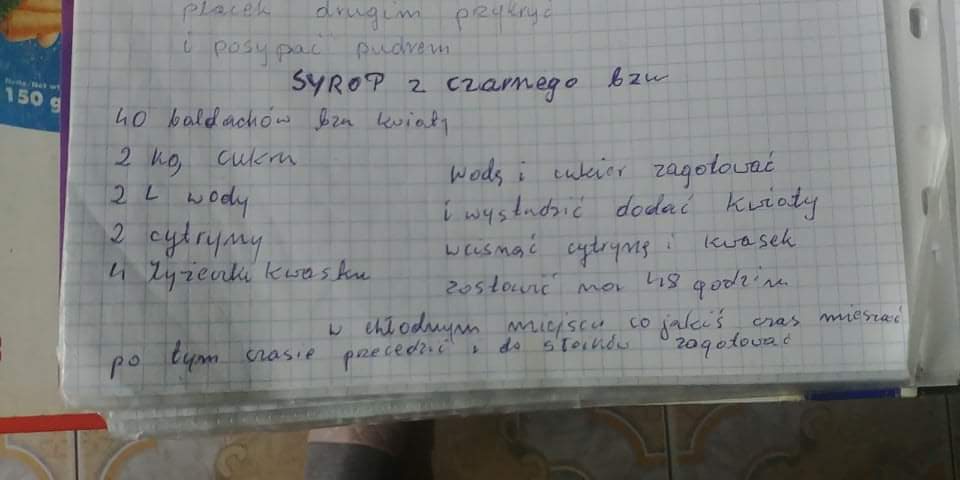 placek drugim przykryć
i posypać pudrem
SYROP z czarnego bzu
40 baldachów bzu kwiaty
2 kg cukru
2 L wody
2 cytryny
4 łyżeczki kwasku
Wodę i cukier zagotować
i wystudzić dodać kwiaty
wcisnąć cytrynę i kwasek
zostawić na 48 godzin
w chłodnym miejscu co jakiś czas mieszać
po tym czasie przecedzić i do słoików zagotować
150 g